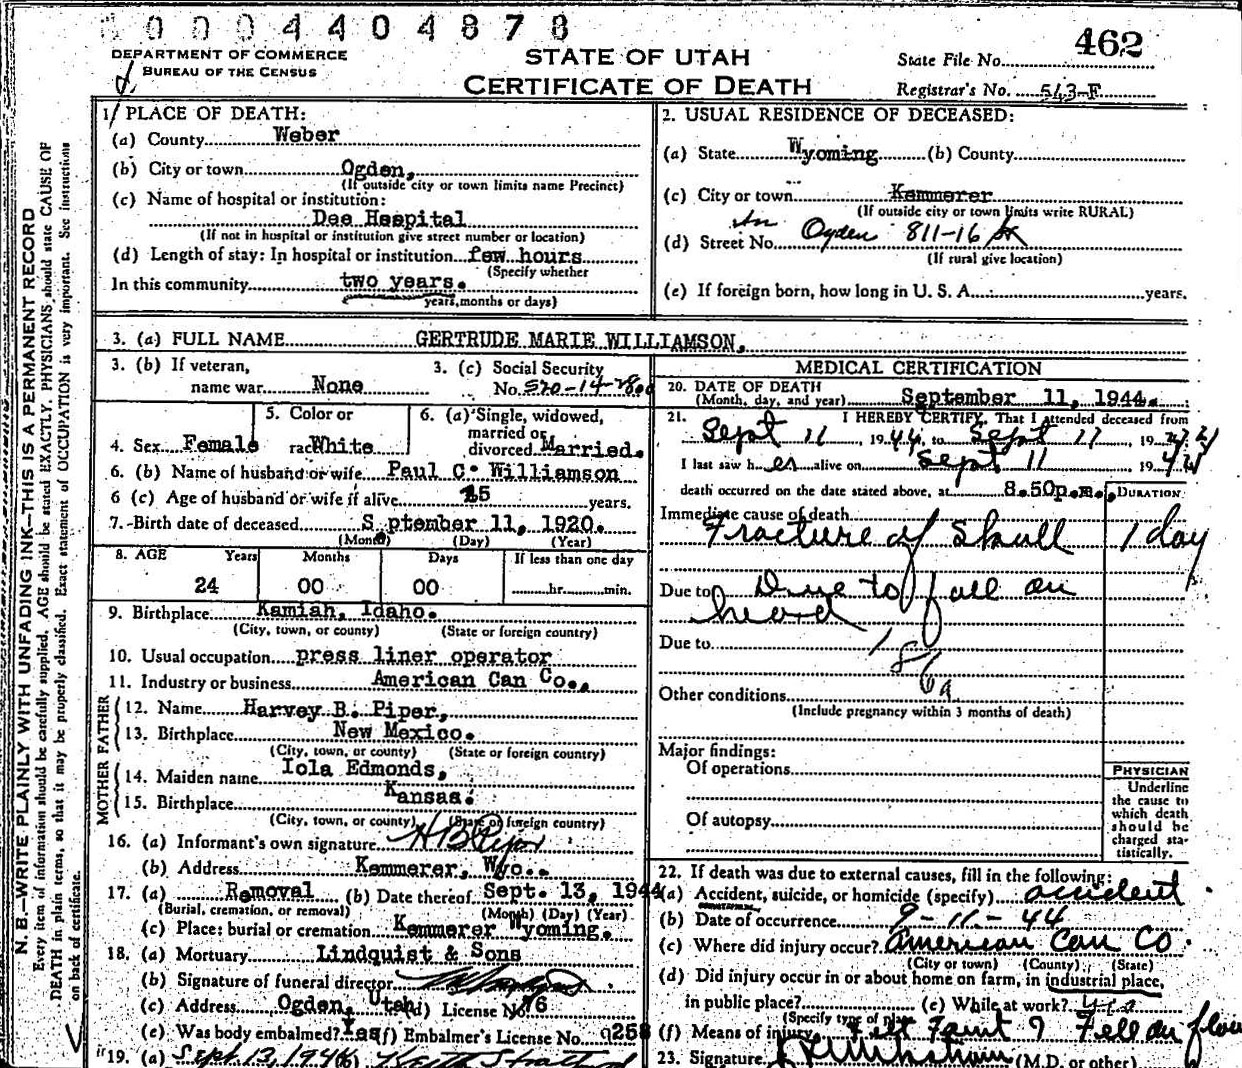 0004404878
DEPARTMENT OF COMMERCE
BUREAU OF THE CENSUS
STATE OF UTAH
CERTIFICATE OF DEATH
State File No. 462
Registrar's No. 543-F
1. PLACE OF DEATH:
(a) County Weber
(b) City or town Ogden,
(If outside city or town limits name Precinct)
(c) Name of hospital or institution:
Dee Hospital
(If not in hospital or institution give street number or location)
(d) Length of stay: In hospital or institution few hours
(Specify whether
In this community two years.
years, months or days)
2. USUAL RESIDENCE OF DECEASED:
(a) State Wyoming (b) County
(c) City or town Kemmerer
(If outside city or town limits write RURAL)
(d) Street No. In Ogden 811-16 St
(If rural give location)
(e) If foreign born, how long in U. S. A. years.
3. (a) FULL NAME GERTRUDE MARIE WILLIAMSON,
3. (b) If veteran,
name war None
3. (c) Social Security
No. 520-14-
4. Sex Female
5. Color or
race White
6. (a) Single, widowed,
married or
divorced Married.
6. (b) Name of husband or wife Paul C. Williamson
6 (c) Age of husband or wife if alive 25 years.
7. Birth date of deceased S ptember 11, 1920.
(Month) (Day) (Year)
8. AGE Years Months Days If less than one day
24 00 00 hr. min.
9. Birthplace Kamiah, Idaho.
(City, town, or county) (State or foreign country)
10. Usual occupation press liner operator
11. Industry or business American Can Co.,
FATHER
12. Name Harvey B. Piper,
13. Birthplace New Mexico.
(City, town, or county) (State or foreign country)
MOTHER
14. Maiden name Iola Edmonds,
15. Birthplace Kansas.
(City, town, or county) (State or foreign country)
16. (a) Informant's own signature H B Piper
(b) Address Kemmerer, Wyo.
17. (a) Removal (b) Date thereof Sept. 13, 1944
(Burial, cremation, or removal) (Month) (Day) (Year)
(c) Place: burial or cremation Kemmerer Wyoming.
18. (a) Mortuary Lindquist & Sons
(b) Signature of funeral director
(c) Address Ogden, Utah (d) License No. 76
(e) Was body embalmed? Yes (f) Embalmer's License No. 258
19. (a) Sept. 13, 1944
MEDICAL CERTIFICATION
20. DATE OF DEATH
(Month, day, and year) September 11, 1944.
21. I HEREBY CERTIFY, That I attended deceased from
Sept 11, 1944, to Sept 11, 1944
I last saw h er alive on Sept 11 1944
death occurred on the date stated above, at 8.50p.m. DURATION
Immediate cause of death
Fracture of Skull 1 day
Due to Due to fall on
head
Due to
186a
Other conditions
(Include pregnancy within 3 months of death)
Major findings:
Of operations
Of autopsy
PHYSICIAN
Underline
the cause to
which death
should be
charged sta-
tistically.
22. If death was due to external causes, fill in the following:
(a) Accident, suicide, or homicide (specify) accident
(b) Date of occurrence 9-11-44
(c) Where did injury occur? American Can Co.
(City or town) (County) (State)
(d) Did injury occur in or about home on farm, in industrial place,
in public place? (e) While at work? yes
(Specify type of place)
(f) Means of injury Felt Faint ? Fell on floor
23. Signature (M.D. or other)
N. B.—WRITE PLAINLY WITH UNFADING INK—THIS IS A PERMANENT RECORD
Every item of information should be carefully supplied. AGE should be stated EXACTLY. PHYSICIANS should state CAUSE OF
DEATH in plain terms, so that it may be properly classified. Exact statement of OCCUPATION is very important. See instructions
on back of certificate.